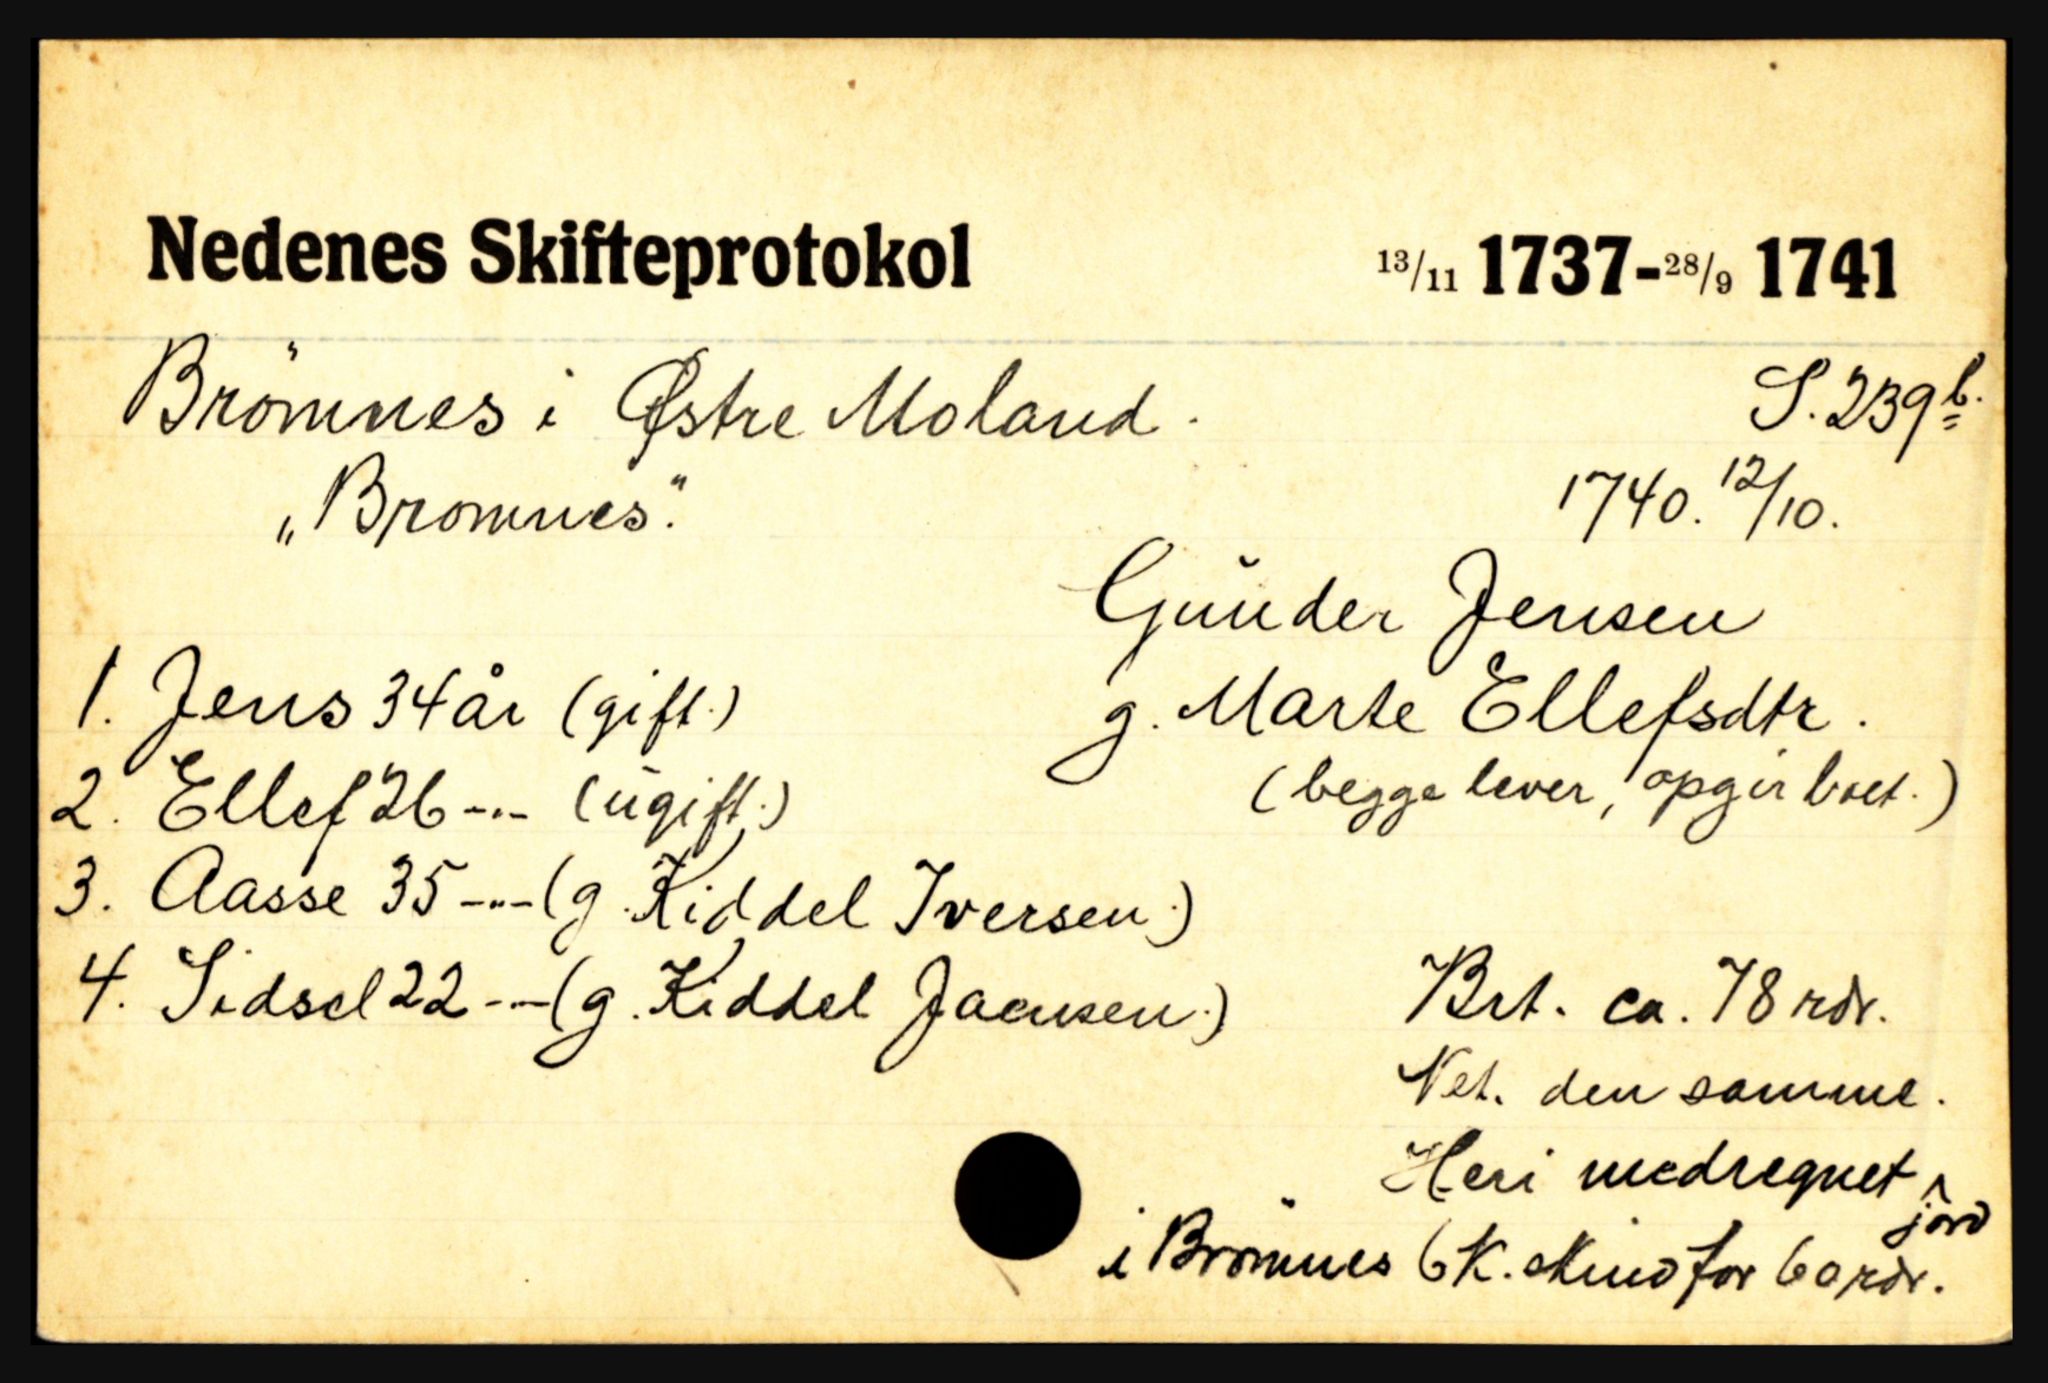 Nedenes Skifteprotokol 13/11 1737-28/9 1741
Brömnes i Østre Moland. S. 239 b.
„Bromnes". 1740. 12/10.
Gŭnder Jensen
1. Jens 34 år (gift.) g. Marte Ellefsdtr.
2. Ellef 26 -"- (ŭgift.) (begge lever, opgir boet.)
3. Aasse 35 -"- (g. Kiddel Iversen.)
4. Sidsel 22 -"- (g. Kiddel Jaensen.) Brt. ca. 78 rdr.
Net. den samme.
Heri medregnet jord
i Brömnes 6 K. skind for 60 rdr.